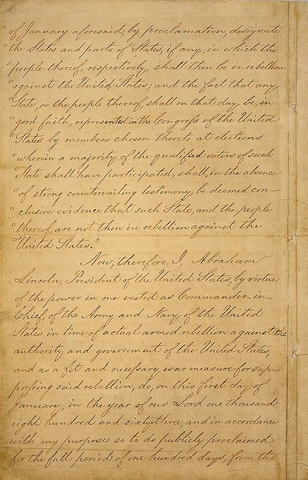 "of January aforesaid, by proclamation, designate
"the States and parts of States, if any, in which the
"people thereof, respectively, shall then be in rebellion
"against the United States; and the fact that any
"State, or the people thereof, shall on that day be, in
"good faith, represented in the Congress of the United
"States by members chosen thereto at elections
"wherein a majority of the qualified voters of such
"State shall have participated, shall, in the absence
"of strong countervailing testimony, be deemed con-
"clusive evidence that such State, and the people
"thereof, are not then in rebellion against the
"United States."
Now, therefore I, Abraham
Lincoln, President of the United States, by virtue
of the power in me vested as Commander-in-
Chief, of the Army and Navy, of the United
States in time of actual armed rebellion against the
authority and government of the United States,
and as a fit and necessary war measure for sup-
pressing said rebellion, do, on this first day of
January, in the year of our Lord one thousand
eight hundred and sixty three, and in accordance
with my purpose so to do publicly proclaimed
for the full period of one hundred days, from the